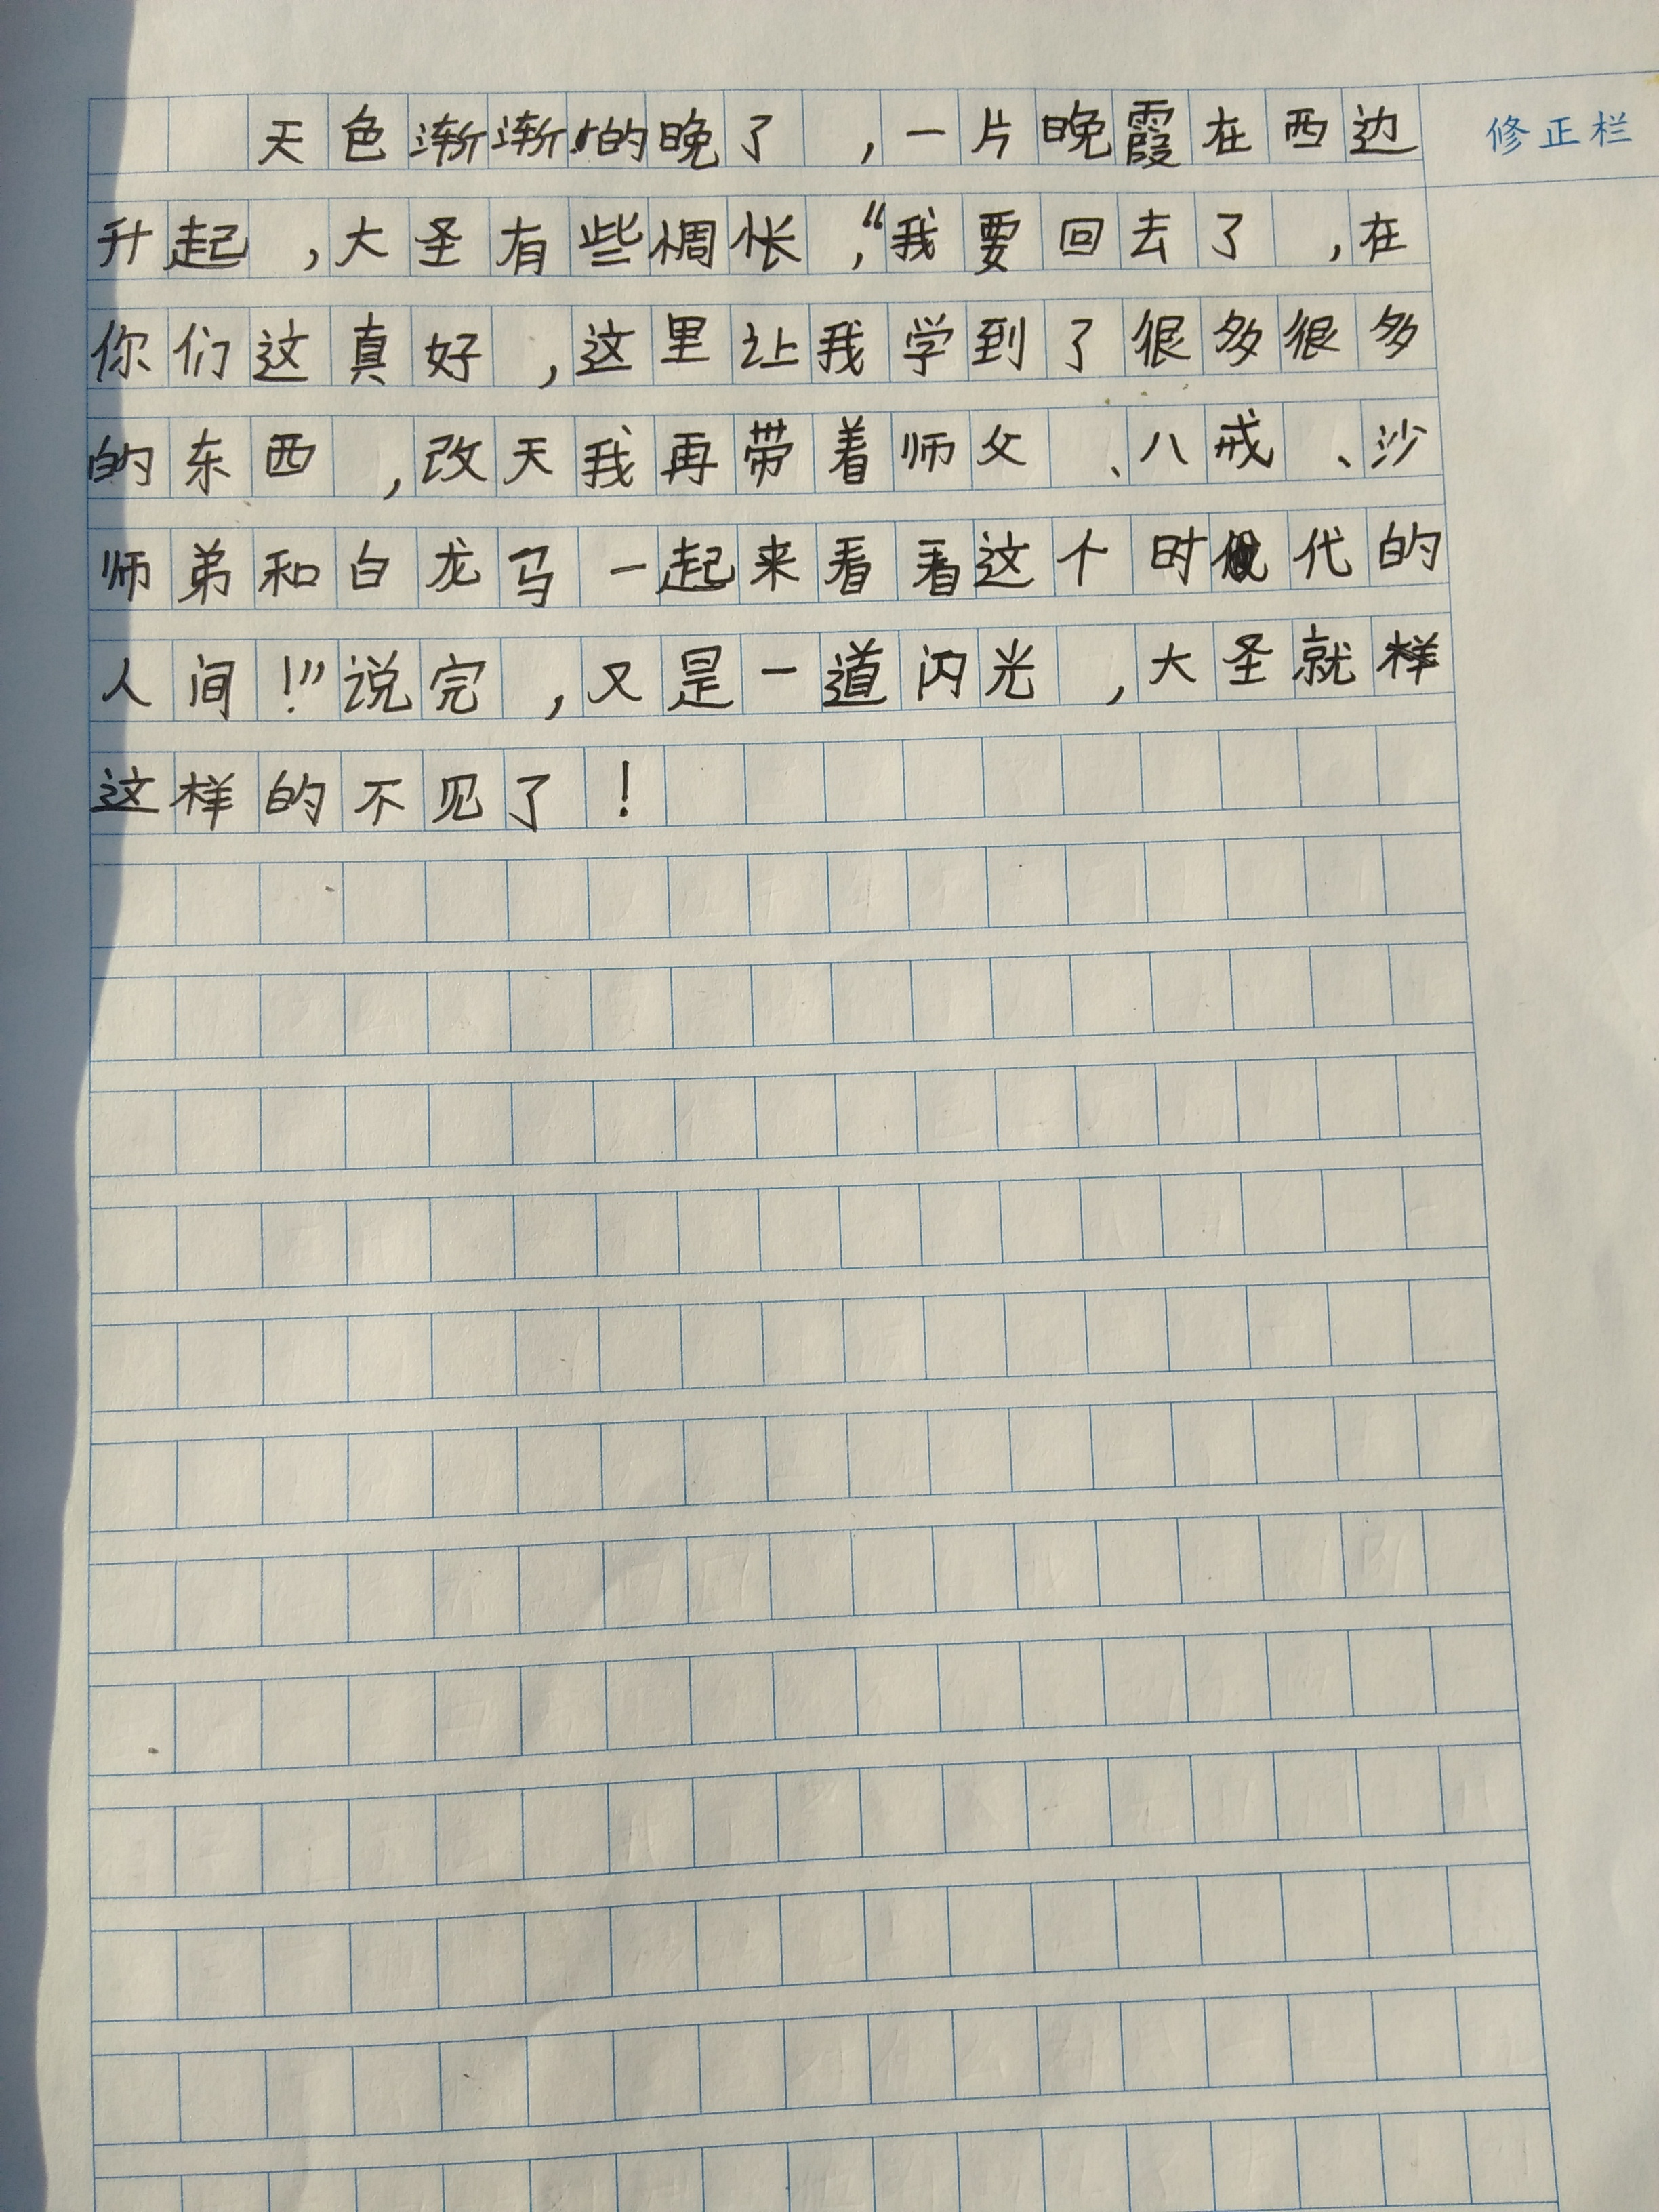 天色渐渐的晚了，一片晚霞在西边
修正栏
升起，大圣有些惆怅，“我要回去了，在
你们这真好，这里让我学到了很多很多
的东西，改天我再带着师父、八戒、沙
师弟和白龙马一起来看看这个时代的
人间！”说完，又是一道闪光，大圣就样
这样的不见了！